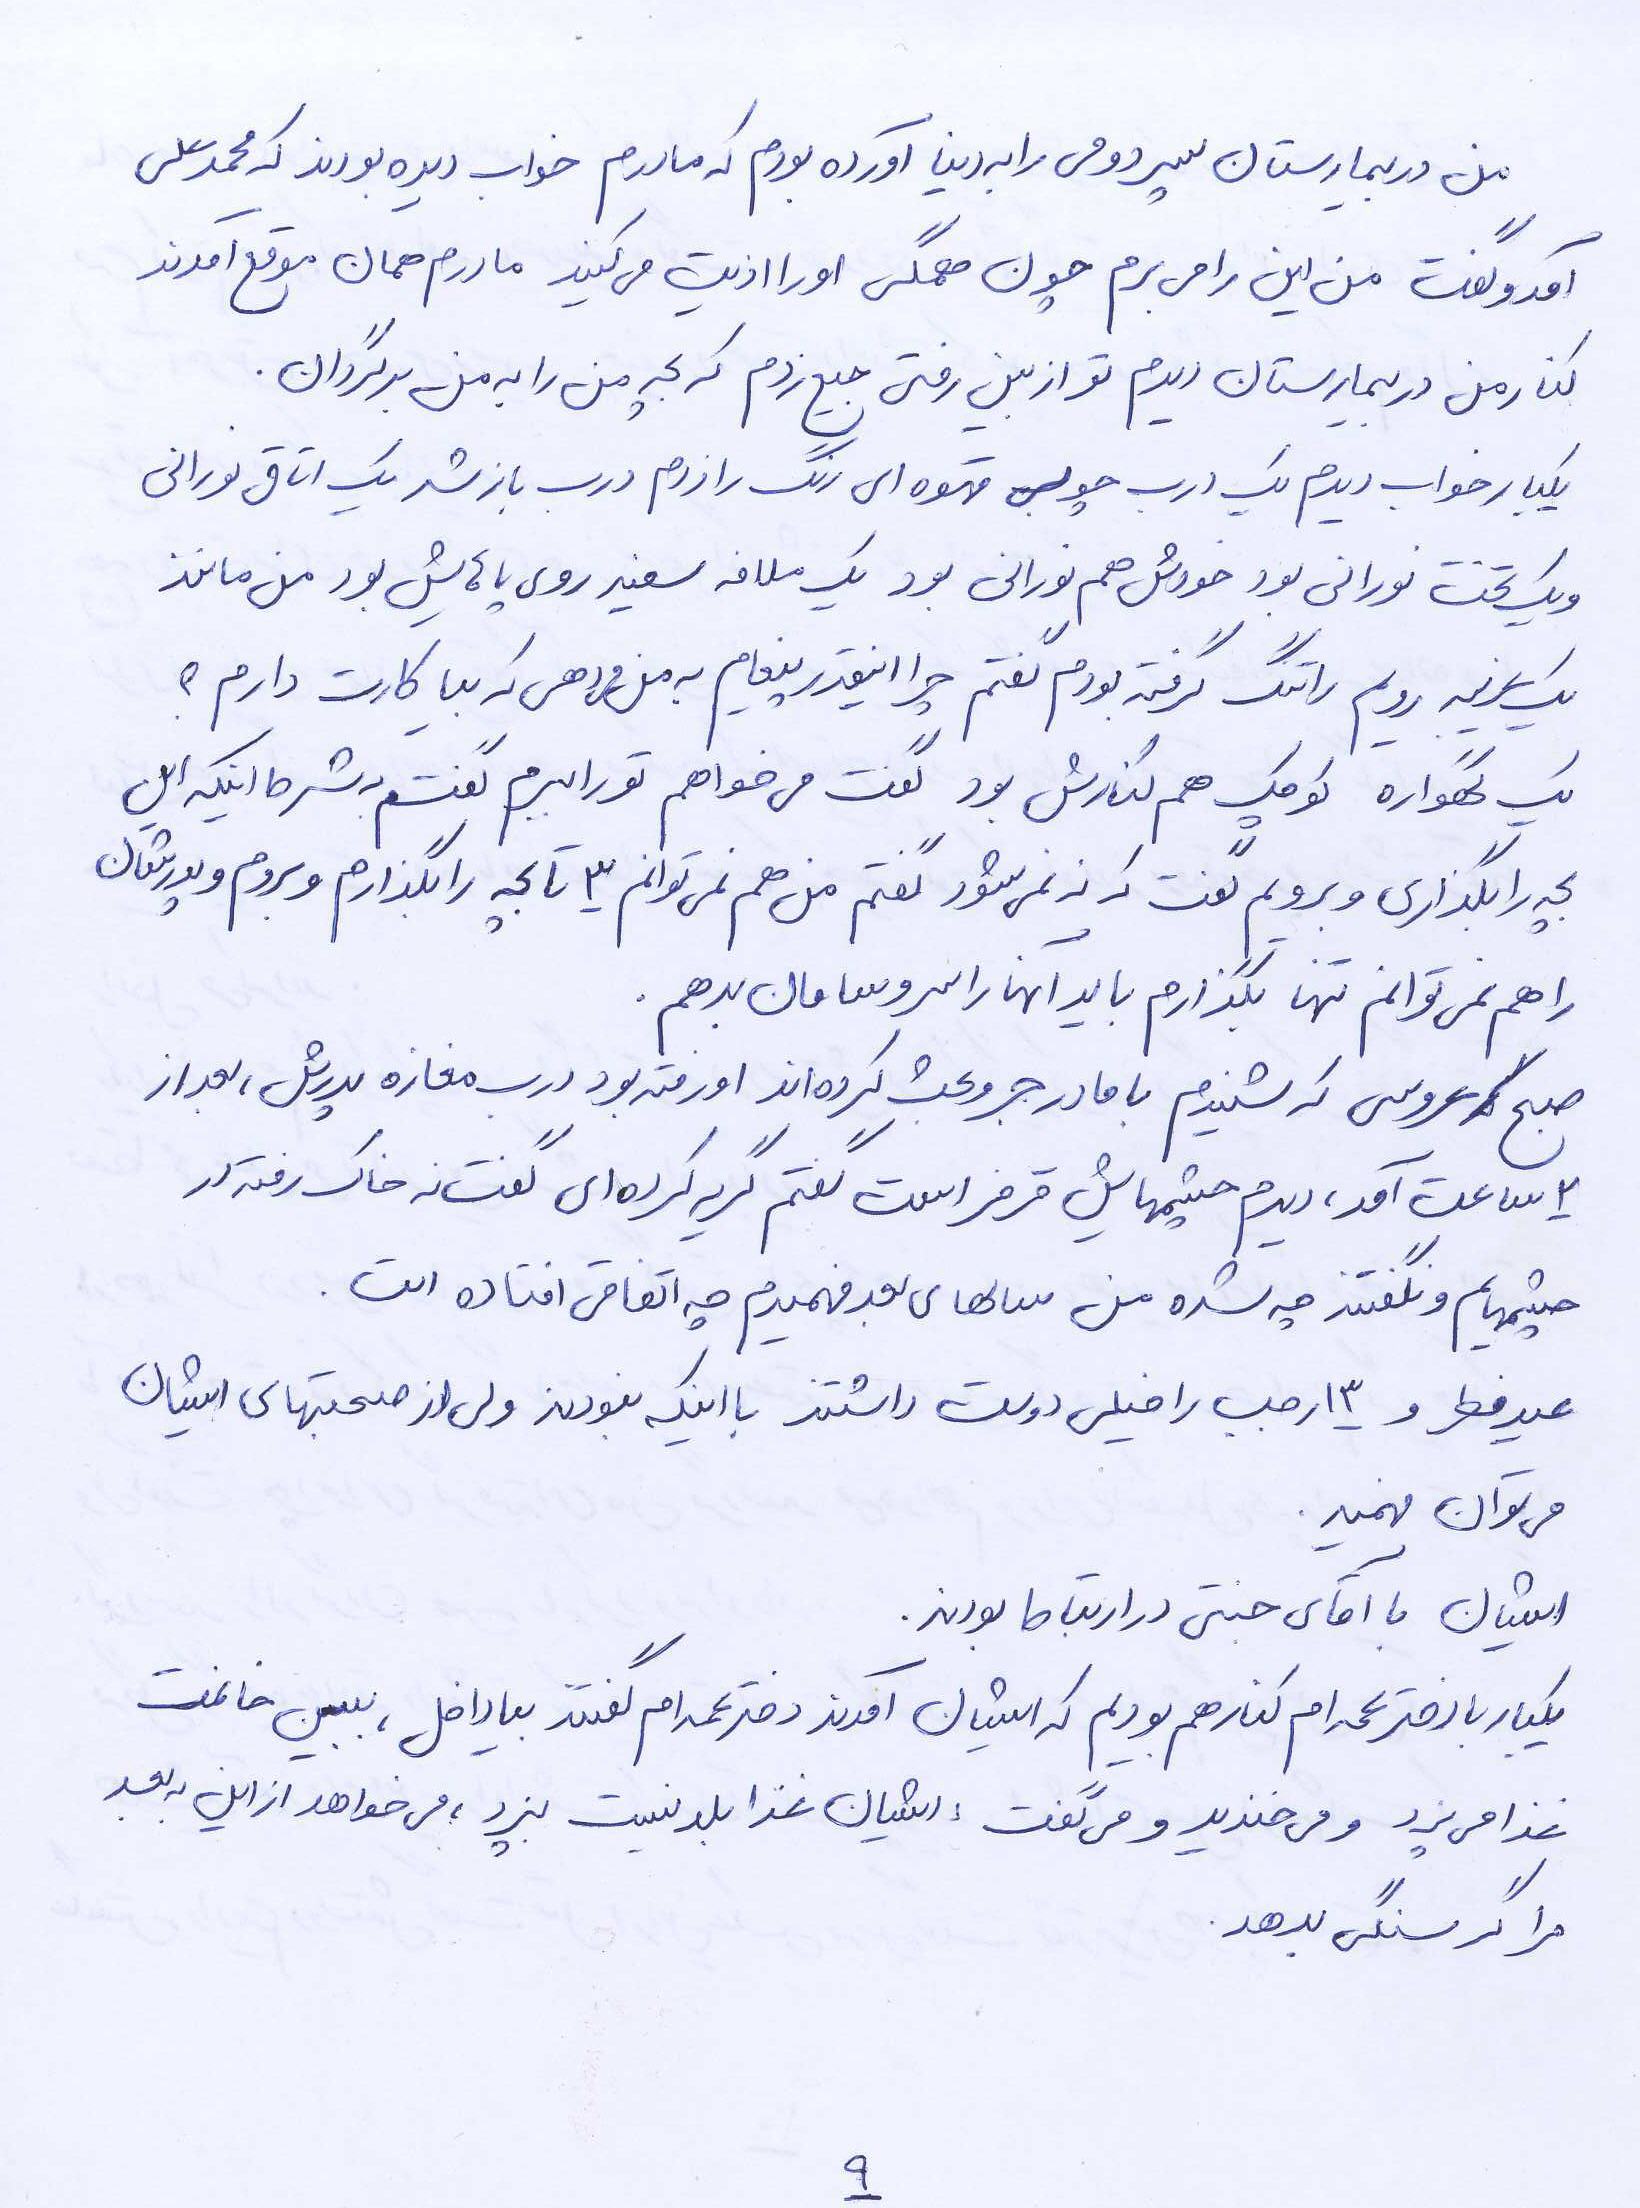 من در بیمارستان پسر دومی را به دنیا آورده بودم که مادرم خواب دیده بودند که محمد علی
آمد و گفت من این را می برم چون همگی او را اذیت می کنید مادرم همان موقع آمدند
کنار من در بیمارستان دیدم تو از بین رفتی جیغ زدم که بچه من را به من برگردان .
یکبار خواب دیدم یک درب چوبی قهوه ای رنگ را زدم درب باز شد یک اتاق نورانی
و یک تخت نورانی بود خودش هم نورانی بود یک ملافه سفید روی پاهایش بود من مانند
یک غریبه رویم را تنگ گرفته بودم گفتم چرا اینقدر پیغام به من می دهی که بیا کارت دارم ؟
یک گهواره کوچک هم کنارش بود گفت می خواهم تو را ببرم گفتم به شرط اینکه این
بچه را بگذاری و برویم گفت که نه نمی شود گفتم من هم نمی توانم ۳ تا بچه را بگذارم و بروم و پدرتان
را هم نمی توانم تنها بگذارم باید آنها را سر و سامان بدهم .
صبح عروسی که شنیدم با مادر جر و بحث کرده اند او رفته بود درب مغازه پدرش ، بعد از
۲ ساعت آمد ، دیدم چشمهایش قرمز است گفتم گریه کرده ای گفت نه خاک رفته در
چشمهایم و نگفتند چه شده من سالهای بعد فهمیدم چه اتفاقی افتاده است .
عید فطر و ۱۳ رجب را خیلی دوست داشتند با اینکه نبودند ولی از صحبتهای ایشان
می توان فهمید .
ایشان با آقای جنتی در ارتباط بودند .
یکبار با دختر عمه ام کنار هم بودیم که ایشان آمدند دختر عمه ام گفتند بیا داخل ، ببین خانمت
غذا می پزد و می خندید و می گفت : ایشان غذا بلد نیست بپزد ، می خواهد از این به بعد
مرا گرسنگی بدهد .
۹